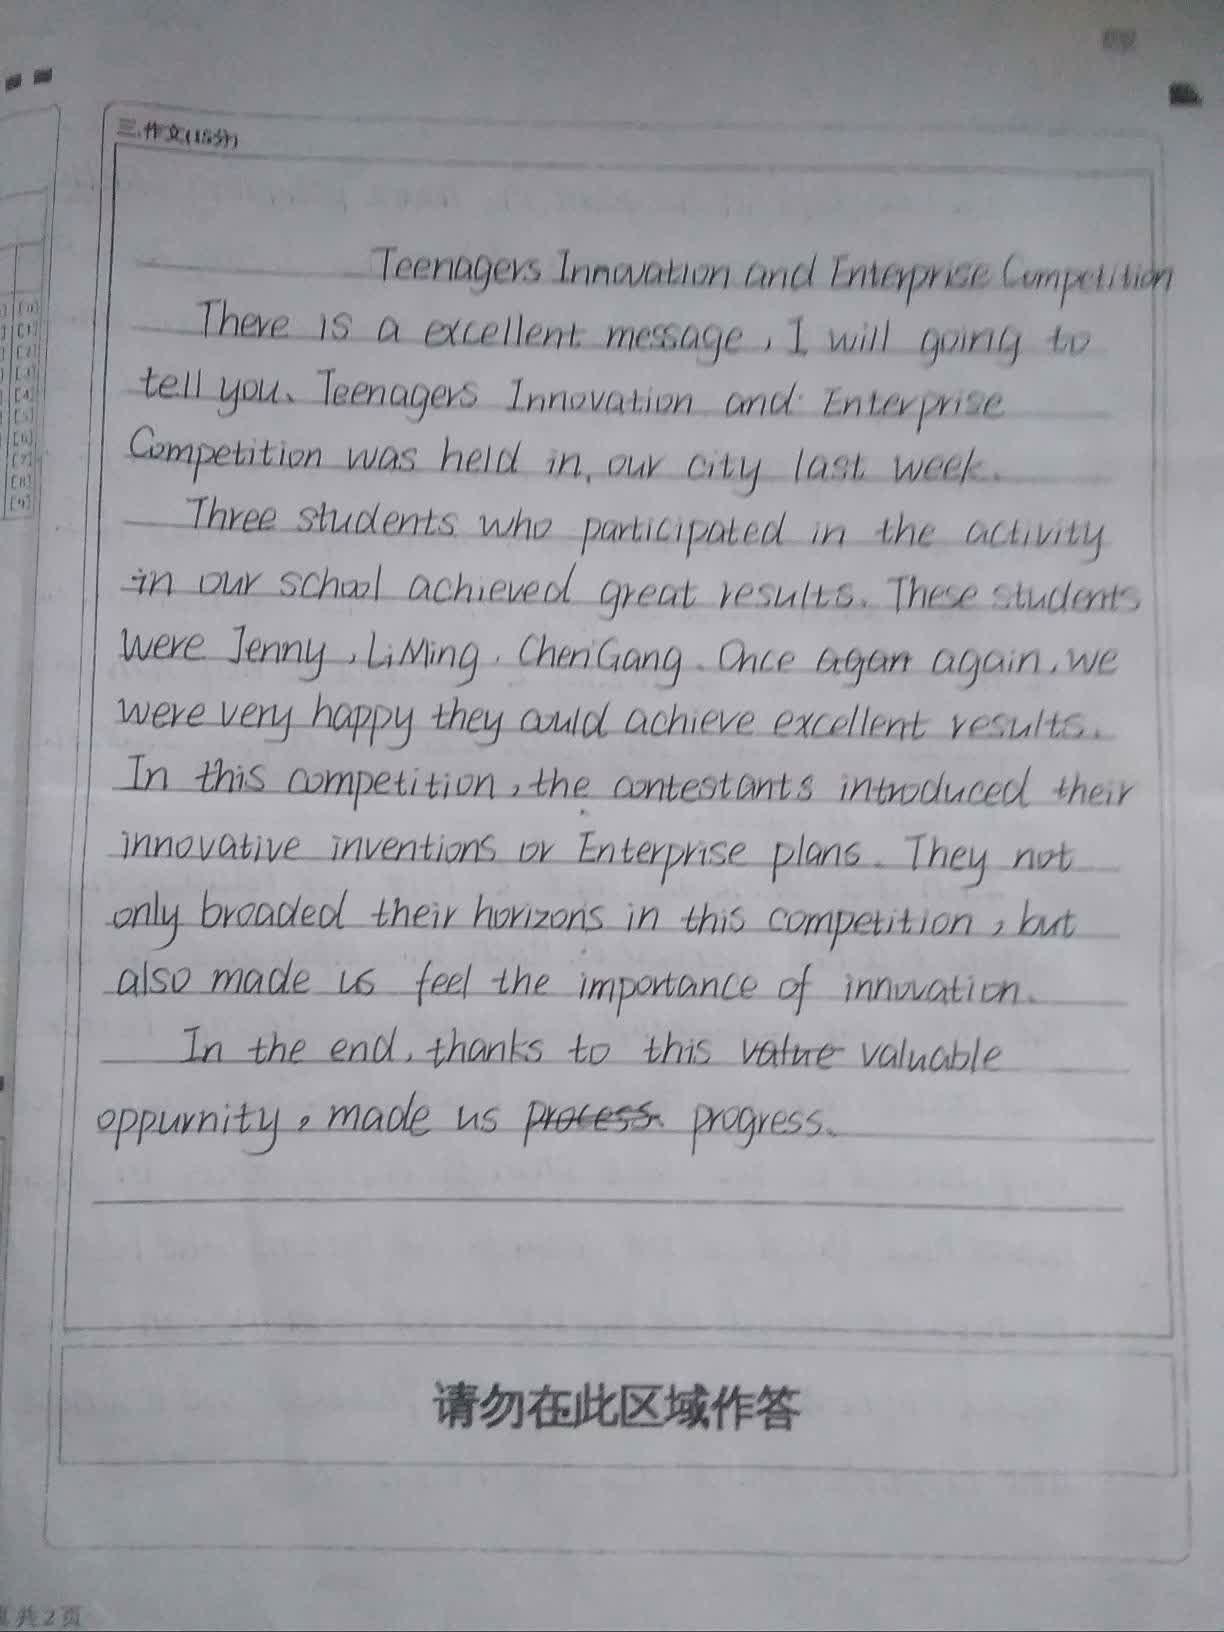 三.作文(15分)
Teenagers Innovation and Enterprise Competition
There is a excellent message, I will going to
tell you. Teenagers Innovation and Enterprise
Competition was held in, our city last week.
Three students who participated in the activity
in our school achieved great results. These students
were Jenny, LiMing, ChenGang. Once agan again, we
were very happy they could achieve excellent results.
In this competition, the contestants introduced their
innovative inventions or Enterprise plans. They not
only broaded their horizons in this competition, but
also made us feel the importance of innovation.
In the end, thanks to this value valuable
oppurnity, made us process. progress.
请勿在此区域作答
共2页